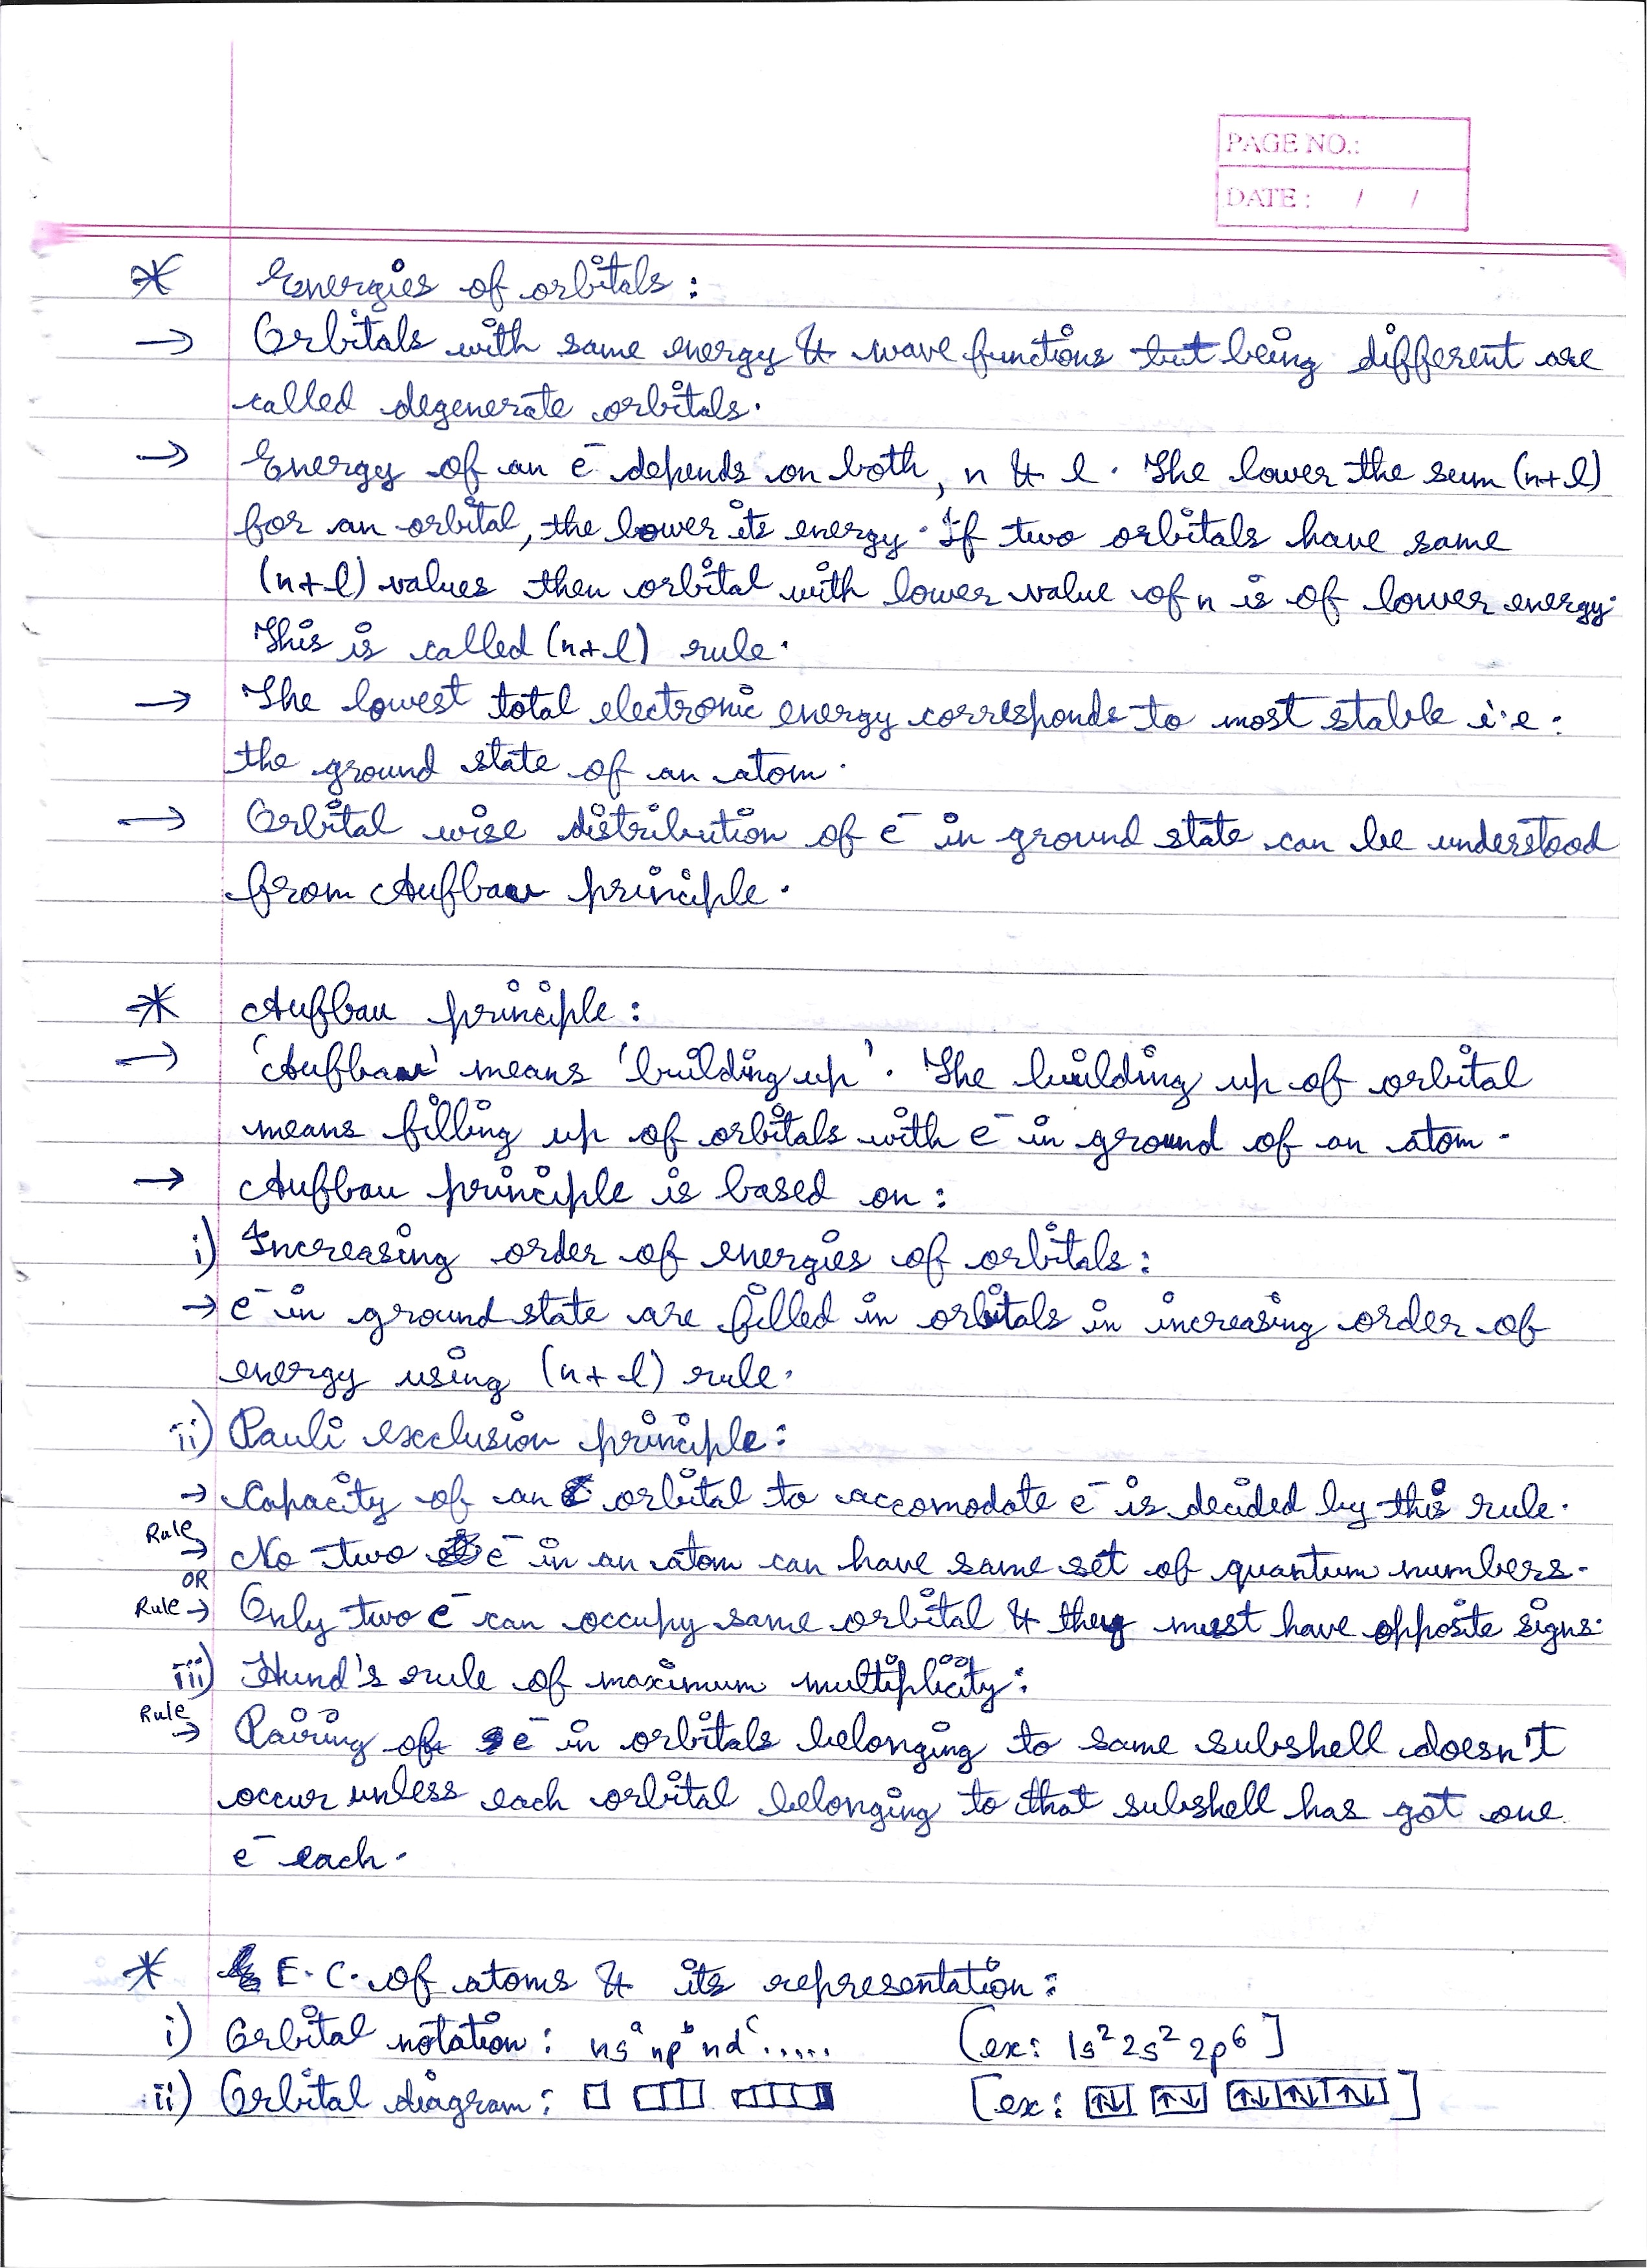 PAGE NO.:
DATE : / /
* Energies of orbitals :
→ Orbitals with same energy & wave functions but being different are
called degenerate orbitals.
→ Energy of an e⁻ depends on both, n & l. The lower the sum (n+l)
for an orbital, the lower its energy. If two orbitals have same
(n+l) values then orbital with lower value of n is of lower energy.
This is called (n+l) rule.
→ The lowest total electronic energy corresponds to most stable i.e.
the ground state of an atom.
→ Orbital wise distribution of e⁻ in ground state can be understood
from Aufbau principle.
* Aufbau principle :
→ 'Aufbau' means 'building up'. The building up of orbital
means filling up of orbitals with e⁻ in ground of an atom.
→ Aufbau principle is based on :
i) Increasing order of energies of orbitals :
→ e⁻ in ground state are filled in orbitals in increasing order of
energy using (n+l) rule.
ii) Pauli exclusion principle :
→ Capacity of an orbital to accomodate e⁻ is decided by this rule.
Rule → No two e⁻ in an atom can have same set of quantum numbers.
OR
Rule → Only two e⁻ can occupy same orbital & they must have opposite signs.
iii) Hund's rule of maximum multiplicity :
Rule → Pairing of e⁻ in orbitals belonging to same subshell doesn't
occur unless each orbital belonging to that subshell has got one
e⁻ each.
* E.C. of atoms & its representation :
i) Orbital notation : nsᵃ npᵇ ndᶜ ..... [ex: 1s² 2s² 2p⁶]
ii) Orbital diagram : □ □□□ □□□□□ [ex: ↑↓ ↑↓ ↑↓↑↓↑↓]